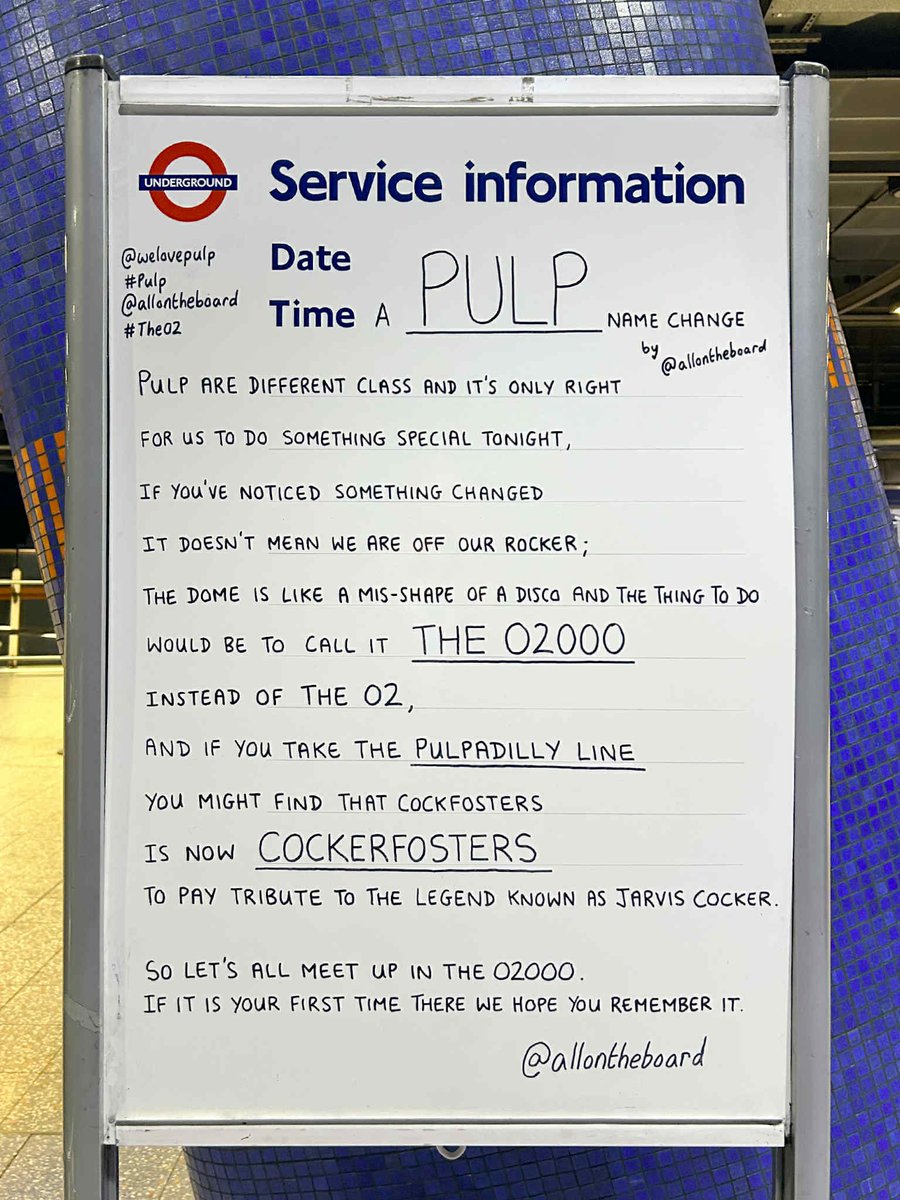 UNDERGROUND
Service information
@welovepulp
#Pulp
@allontheboard
#TheO2
Date
Time A PULP NAME CHANGE
by @allontheboard
PULP ARE DIFFERENT CLASS AND IT'S ONLY RIGHT
FOR US TO DO SOMETHING SPECIAL TONIGHT,
IF YOU'VE NOTICED SOMETHING CHANGED
IT DOESN'T MEAN WE ARE OFF OUR ROCKER;
THE DOME IS LIKE A MIS-SHAPE OF A DISCO AND THE THING TO DO
WOULD BE TO CALL IT THE O2000
INSTEAD OF THE O2,
AND IF YOU TAKE THE PULPADILLY LINE
YOU MIGHT FIND THAT COCKFOSTERS
IS NOW COCKERFOSTERS
TO PAY TRIBUTE TO THE LEGEND KNOWN AS JARVIS COCKER.
SO LET'S ALL MEET UP IN THE O2000.
IF IT IS YOUR FIRST TIME THERE WE HOPE YOU REMEMBER IT.
@allontheboard